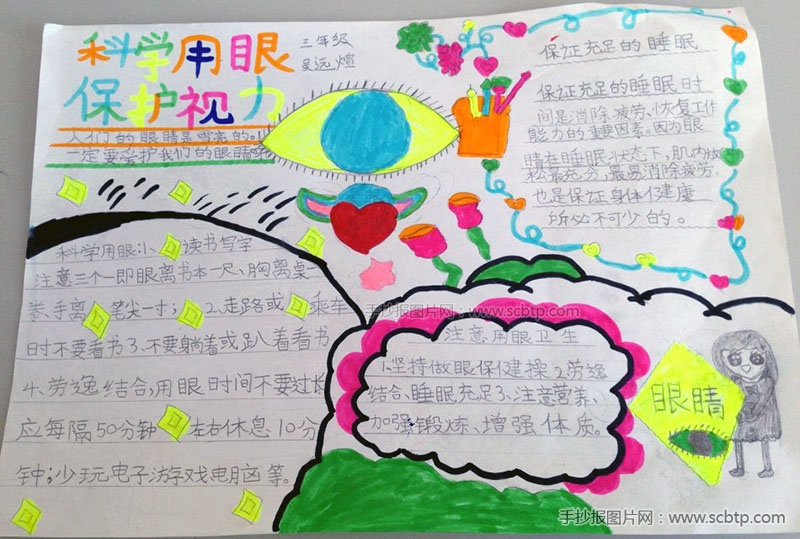 科学用眼
保护视力
三年级
吴远煊
人们的眼睛是雪亮的。
一定要爱护我们的眼睛
保证充足的睡眠
保证充足的睡眠时
间是消除疲劳、恢复工作
能力的重要因素。因为眼
睛在睡眠状态下,肌肉
松最充分,最易消除疲劳,
也是保证身体健康
所必不可少的。
科学用眼:1、读书写字
注意三个一即眼离书本一尺、胸离桌一
拳、手离笔尖一寸;2、走路或乘车
时不要看书3、不要躺着或趴着看书
4、劳逸结合,用眼时间不要过长
应每隔50分钟左右休息10分
钟;少玩电子游戏电脑等。
手抄报图片网:www.scbtp.com
注意用眼卫生
1.坚持做眼保健操2.劳逸
结合、睡眠充足3、注意营养、
加强锻炼、增强体质。
眼睛
手抄报图片网:www.scbtp.com